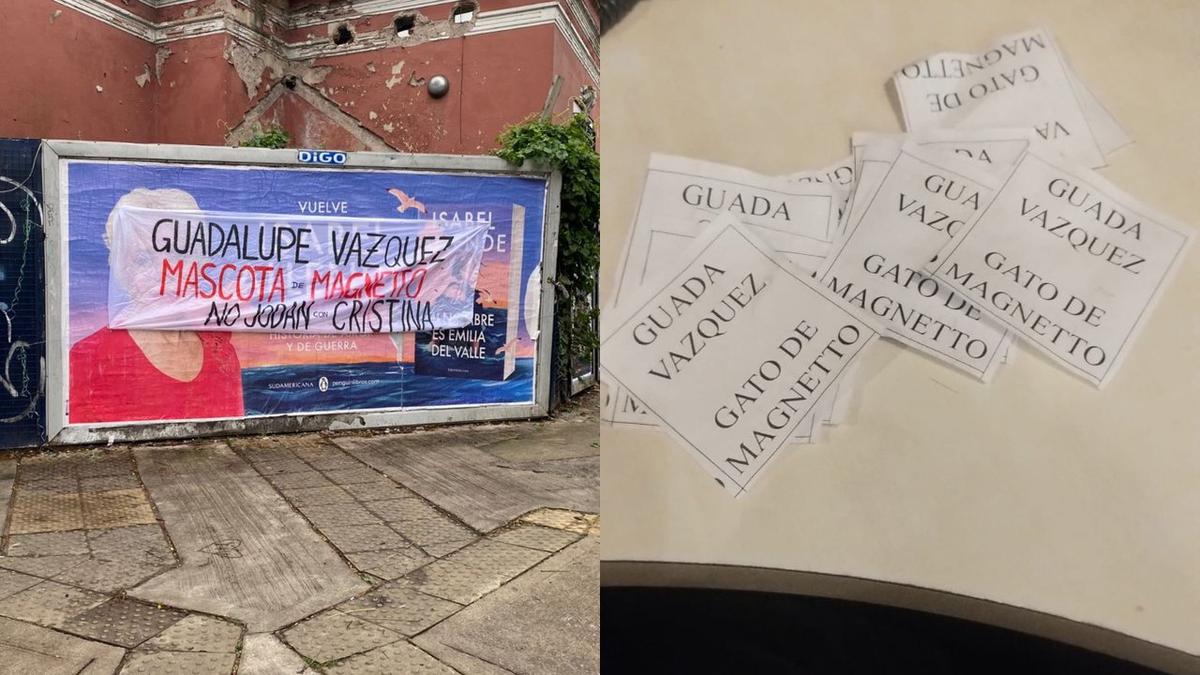 DiGO
VUELVE
ISABEL
GUADALUPE VAZQUEZ
MASCOTA DE MAGNETTO
NO JODAN CON CRISTINA
ES EMILIA
DEL VALLE
Y DE GUERRA
SUDAMERICANA penguinlibros.com
MAGNETTO
GATO DE
VA
GUADA
GUADA
VAZQUEZ
GATO DE
MAGNETTO
GUA
VAZQ
GATO DE
MAGNETTO
GUADA
VAZQUEZ
GATO DE
MAGNETTO